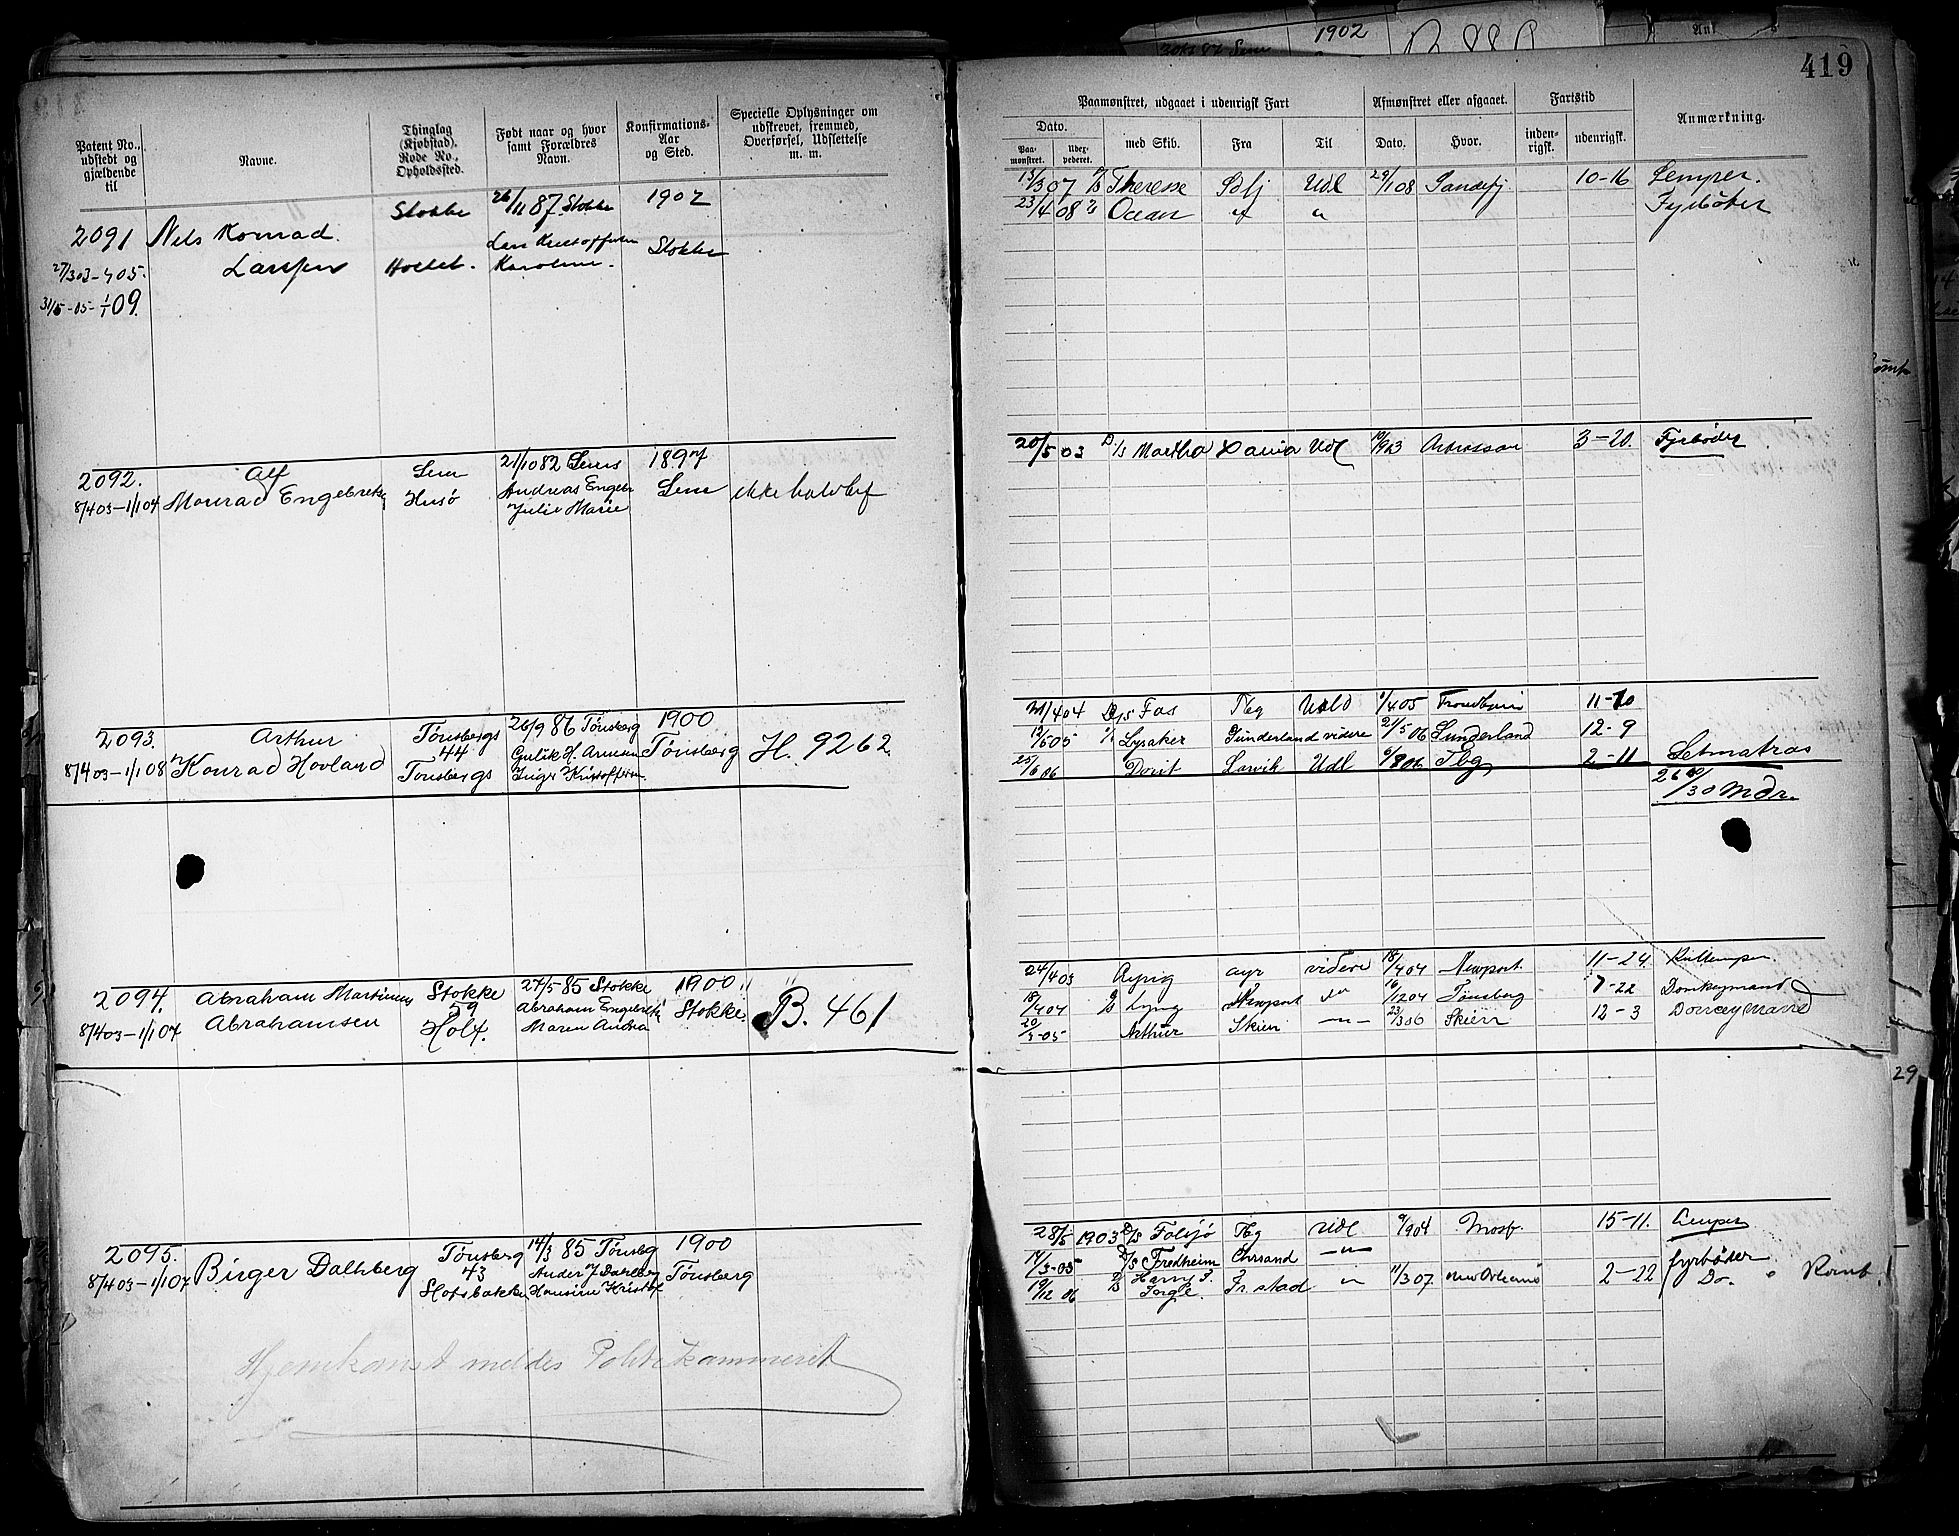 1902
419
Patent No., udstedt og gjældende til
Navne.
Thinglag (Kjøbstad). Rode No., Opholdssted.
Født naar og hvor samt Forældres Navn.
Konfirmations-Aar og Sted.
Specielle Oplysninger om udskrevet, fremmed, Overførsel, Udslettelse m. m.
Paamønstret, udgaaet i udenrigsk Fart
Afmønstret eller afgaaet.
Fartstid
Anmærkning.
Dato.
Paa-mønstret.
med Skib.
Fra
Til
Dato.
Hvor.
inden-rigsk.
udenrigsk.
2091
27/3 03
31/5-05-1/1 09.
Nels Konrad
Larssen
Stokke
26/11 87 Stokke
Karoline.
1902
Stokke
15/3 07 Therese
Udl
29/1 08
Sandefj.
10-16
Lemper.
23/4 08
Ocean
Fyrbøter
2092.
8/4 03-1/1 04
Alf
Monrad Engebrets
Sem
Husø
21/10 82 Sems
Andreas Engebr
Julie Marie
1897
Sem
20/5 03
D/S Martha
Udl
3-20.
Fyrbøder
2093.
8/4 03-1/1 08
Arthur
Konrad Hovland
Tønsbergs
44
Tønsbergs
26/9 86 Tønsberg
Gulik H. Arnesen
Inger Kristoffersen
1900
Tønsberg
H. 9262
/4 04
D/S Fos
Tbg
Udld
/4 05
Trondhjem
11-10
/5 05
Lysaker
Sunderland videre
2/5 06
Sunderland
12-9
25/6 06
Dorit
Larvik
Udl
/8 06
Tbg
2-11
Letmatros
26 20/30 Mdr.
2094.
8/4 03-1/1 07
Abraham Martinius
Abrahamsen
Stokke
59
Holt.
27/5 85 Stokke
Abraham Engebrets
Maren Andrea
1900
Stokke.
B. 461
24/4 03
ayr
videre
18/4 04
Newport.
11-24.
18/4 04
Lyng
Newport
16/12 04
Tønsberg
7-22
Donkeymand
20/3-05
Arthur
Skien
23/3 06
Skien
12-3
Donkeymand
29
2095.
8/4 03-1/1 07
Birger Dalhberg
Tønsberg
43
Slotsbakken
14/3 85 Tønsbg
Anders J Dahlberg
Hansine Kristof
1900
Tønsberg
28/5 1903
D/S Folsjø
Tbg
Udl
/9 04
Mosf.
15-11.
Lemper
14/3-05
D/S Fredheim
Chrsand
fyrbøder
10/12 06
Harry T.
Ingle.
Fr.stad
11/3 07.
New Orleans
2-22
Do.
Rømt.
Hjemkomst meldes Politikammeret